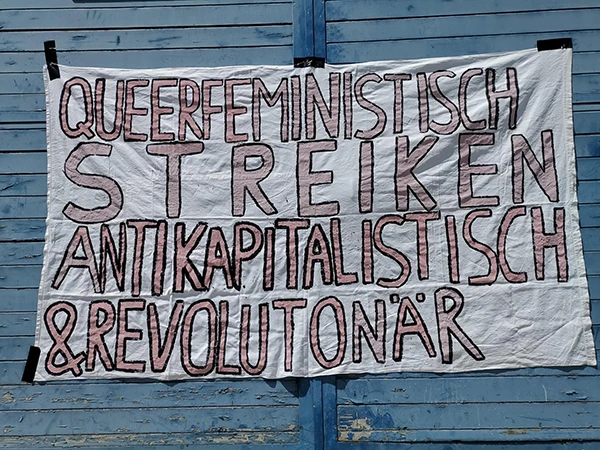 QUEERFEMINISTISCH
STREIKEN
ANTIKAPITALISTISCH
&REVOLUTONÄR